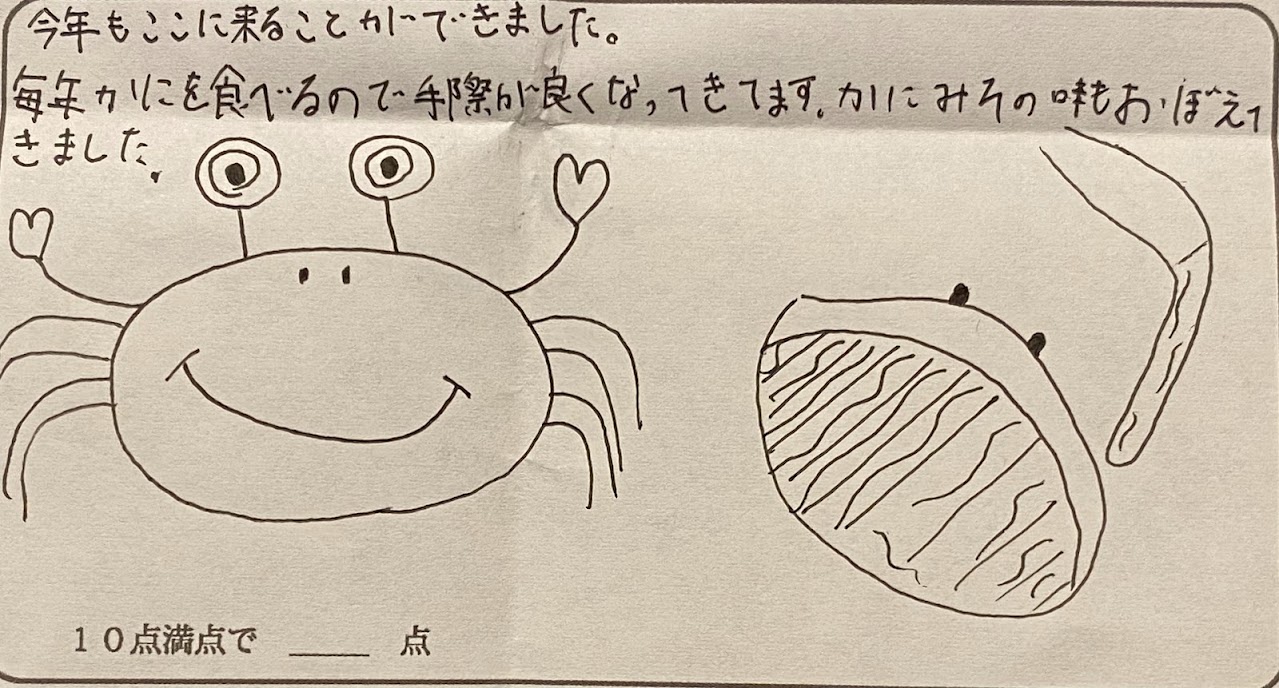 今年もここに来ることができました。
毎年かにを食べるので手際が良くなってきてます。かにみその味もおぼえて
きました。
10点満点で ____ 点